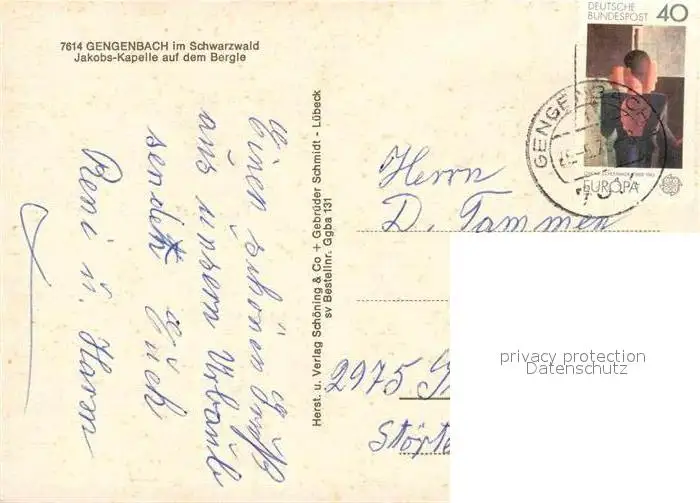 7614 GENGENBACH im Schwarzwald
Jakobs-Kapelle auf dem Bergle
Einen schönen Gruß
aus unserm Urlaub
sendet Euch
Reni u. Harm
Herst. u. Verlag Schöning & Co + Gebrüder Schmidt - Lübeck
sv Bestellnr. Ggba 131
DEUTSCHE
BUNDESPOST 40
EUROPA
GENGENBACH
Herrn
D. Tammen
2975
Störte
privacy protection
Datenschutz